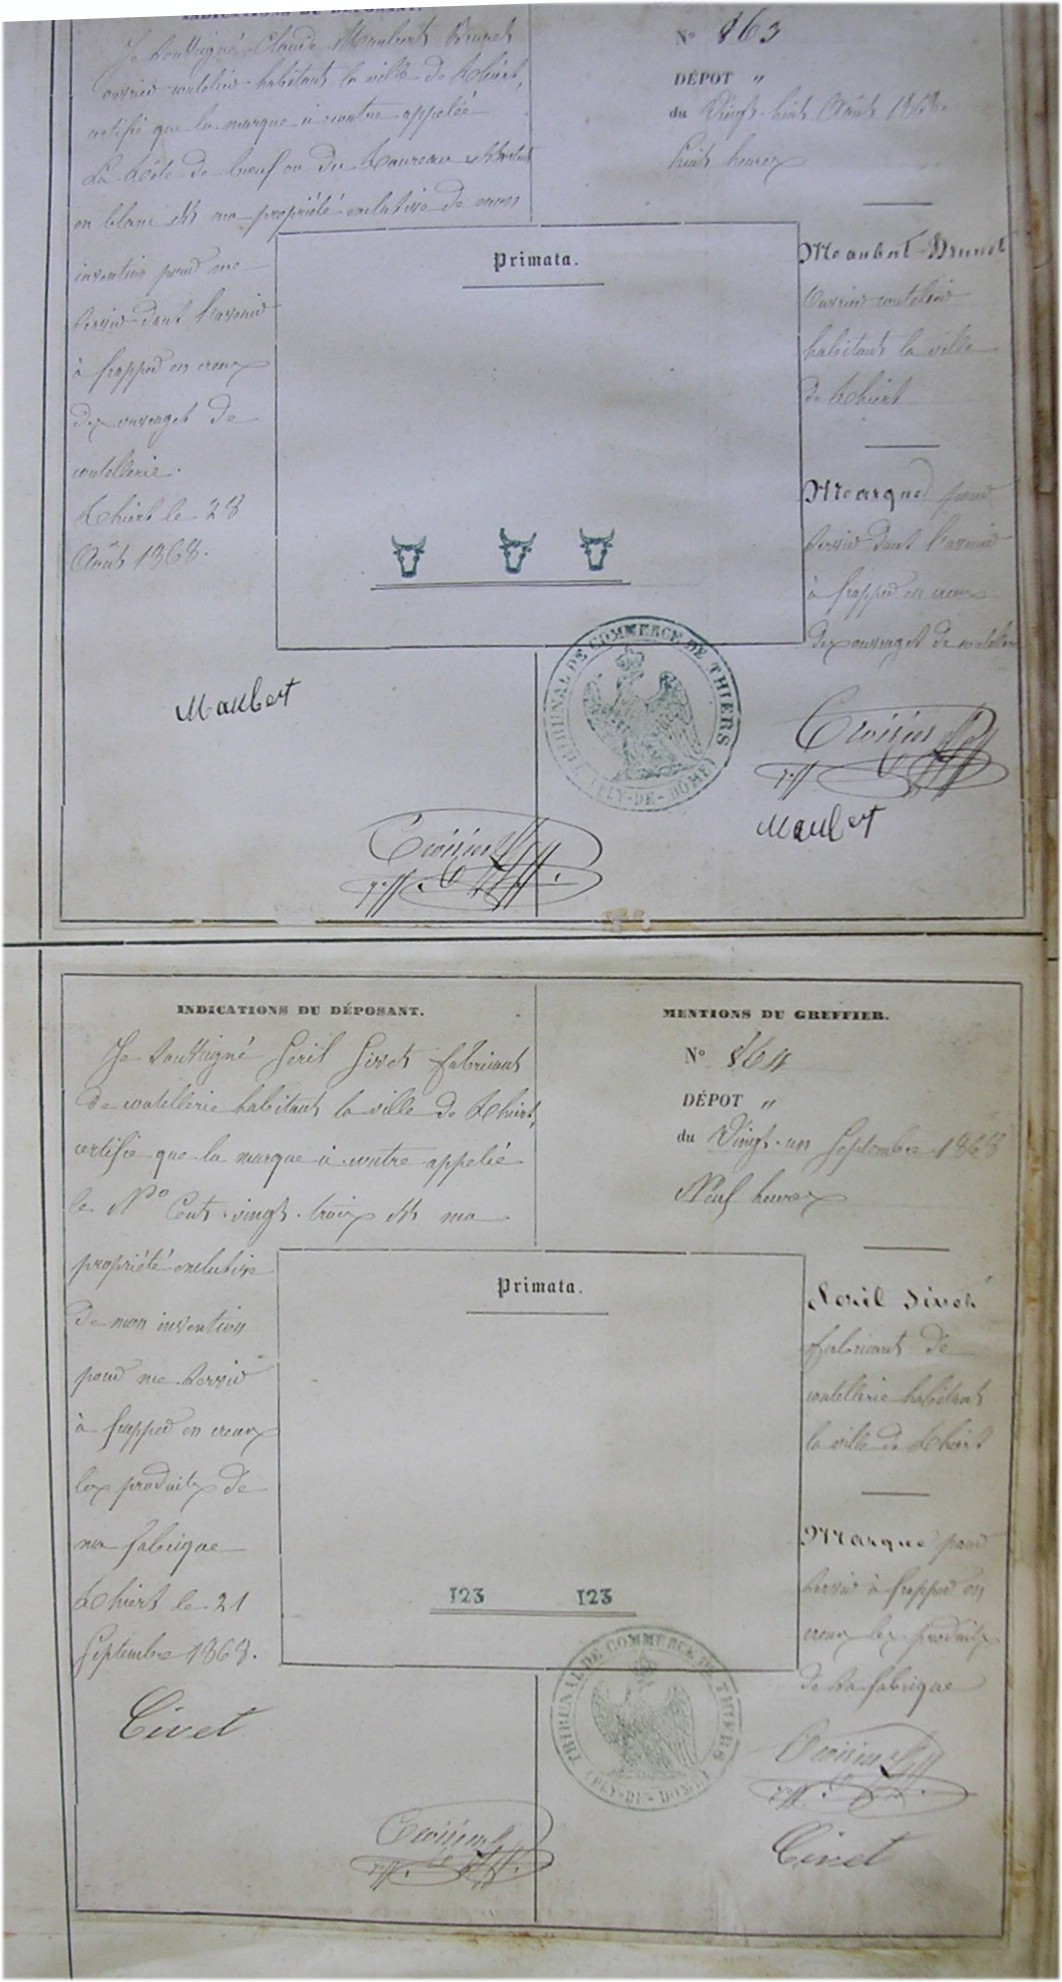 INDICATIONS DU DÉPOSANT.
Je soussigné Claude Maubert Brunet
ouvrier coutelier habitant la ville de Thiers,
certifie que la marque ci contre appelée
La Tête de bœuf ou du Taureau
en blanc est ma propriété exclusive de mon
invention pour me
servir dans l'avenir
à frapper en creux
des ouvrages de
coutellerie.
Thiers le 28
Août 1868.
Maubert
Croizier
N° 863
DÉPOT "
du Vingt-huit Août 1868.
huit heures
Maubert-Brunet
Ouvrier coutelier
habitant la ville
de Thiers
Marque pour
servir dans l'avenir
à frapper en creux
des ouvrages de coutellerie
Croizier
Maubert
Primata.
TRIBUNAL DE COMMERCE DE THIERS
(PUY-DE-DOME)
INDICATIONS DU DÉPOSANT.
Je soussigné Civet fabricant
de coutellerie habitant la ville de Thiers,
certifie que la marque ci contre appelée
le N° Cent-vingt-trois est ma
propriété exclusive
de mon invention
pour me servir
à frapper en creux
les produits de
ma fabrique
Thiers le 21
Septembre 1868.
Civet
Croizier
MENTIONS DU GREFFIER.
N° 864
DÉPOT "
du Vingt-un Septembre 1868
Neuf heures
Civet
fabricant de
coutellerie habitant
la ville de Thiers
Marque pour
servir à frapper en
creux les produits
de sa fabrique
Croizier
Civet
Primata.
123 123
TRIBUNAL DE COMMERCE DE THIERS
(PUY-DE-DOME)